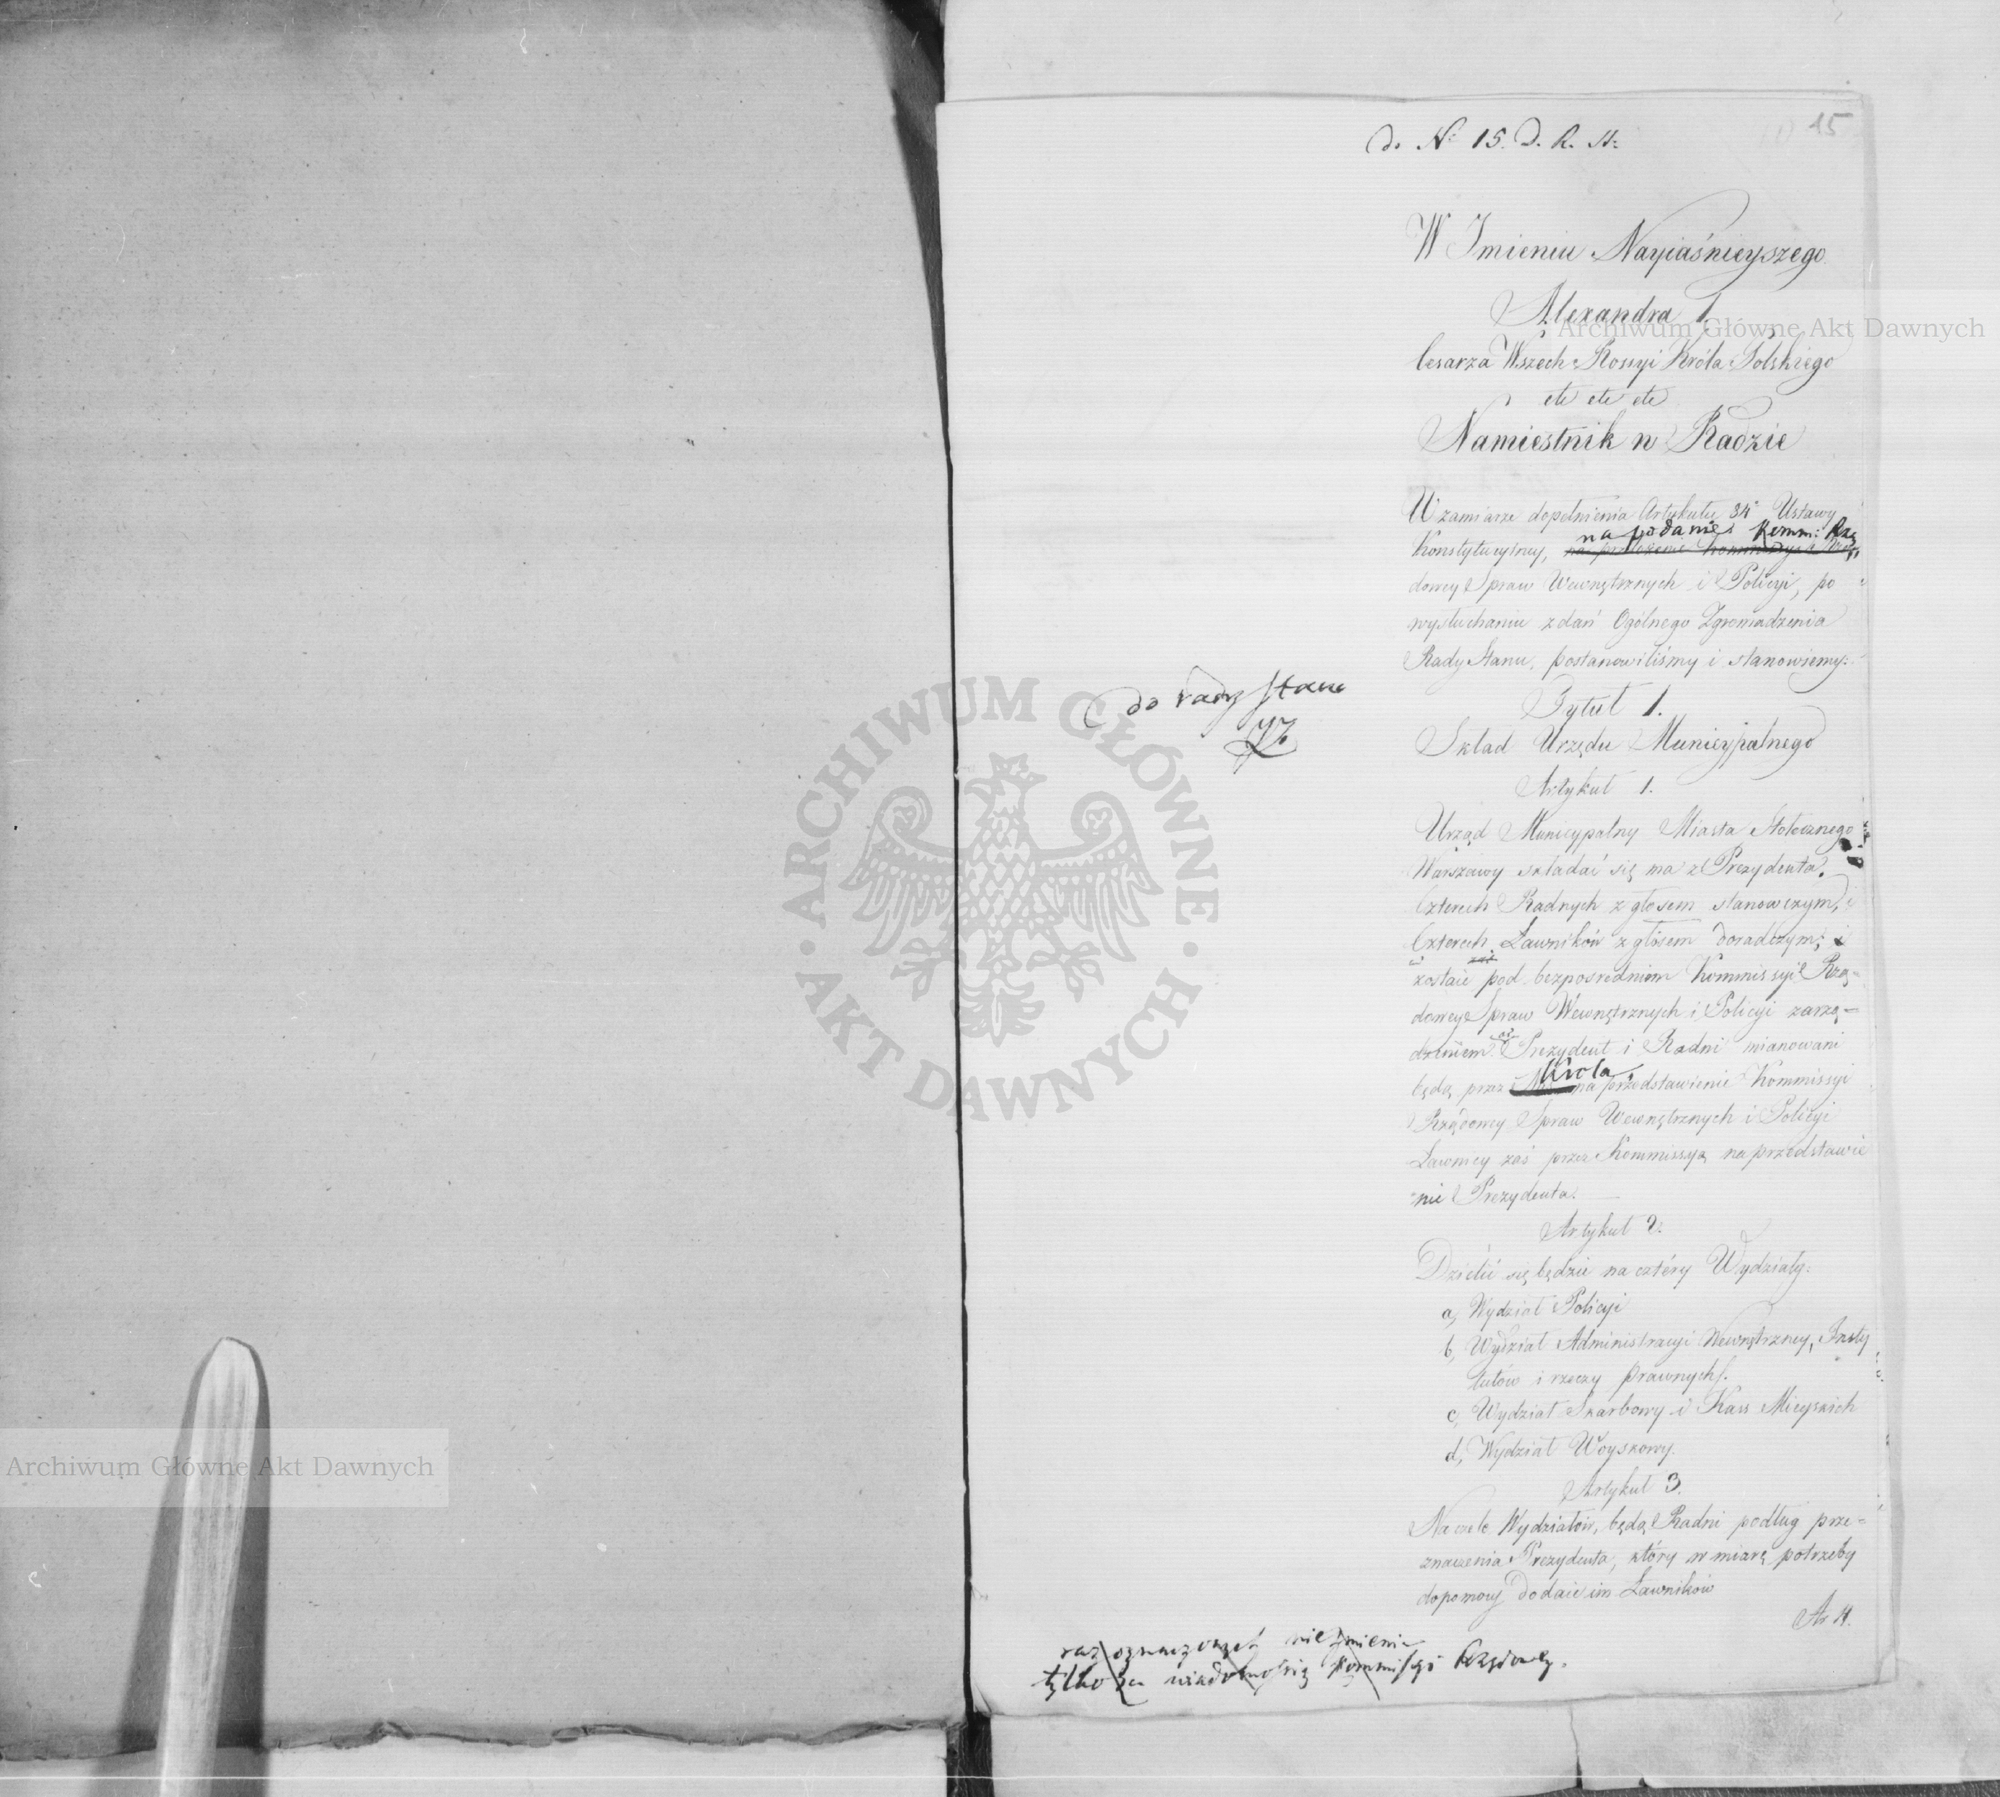 15
do № 15. D. R. St:
W Imieniu Nayiaśnieyszego
Alexandra 1.
Cesarza Wszech Rossyi Króla Polskiego
etc etc etc
Namiestnik w Radzie
W zamiarze dopełnienia Artykułu 84 Ustawy
na podanie Komm: Rzą
Konstytucyiney,
dowey Spraw Wewnętrznych i Policyi, po
wysłuchaniu zdań Ogólnego Zgromadzenia
Rady Stanu, postanowiliśmy i stanowiemy:
do rady stanu
Tytuł 1.
Skład Urzędu Municypalnego
Artykuł 1.
Urząd Municypalny Miasta Stołecznego
Warszawy składać się ma z Prezydenta,
Czterech Radnych z głosem stanowczym,
Czterech Ławników z głosem doradczym, i
zostaie pod bezpośredniem Kommissyi Rzą-
dowey Spraw Wewnętrznych i Policyi zarzą-
dzeniem. Prezydent i Radni mianowani
Króla
będą przez na przedstawienie Kommissyi
Rządowey Spraw Wewnętrznych i Policyi
Ławnicy zaś przez Kommissyą na przedstawie
nie Prezydenta.
Artykuł 2.
Dzielić się będzie na cztéry Wydziały:
a, Wydział Policyi
b, Wydział Administracyi Wewnętrzney, Insty
tutów i rzeczy prawnych.
c, Wydział Skarbowy i Kass Mieyskich
d, Wydział Woyskowy.
Artykuł 3.
Na czele Wydziałów, będą Radni podług prze-
znaczenia Prezydenta, który w miarę potrzeby
do pomocy dodaie im Ławników
Ar 4.
raz oznaczonych nie zmienia
tylko za wiadomością Kommissyi Rządowey.
Archiwum Główne Akt Dawnych
Archiwum Główne Akt Dawnych
ARCHIWUM GŁÓWNE · AKT DAWNYCH ·